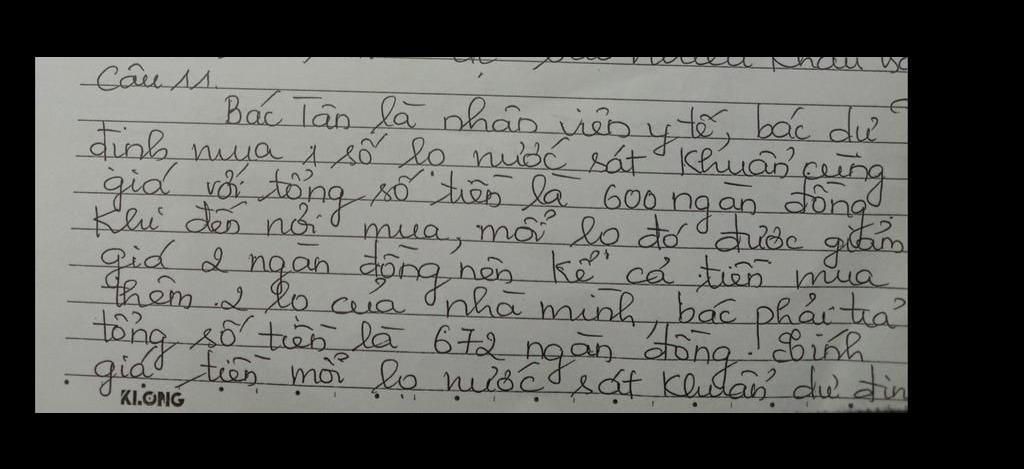 Câu 11.
Bác Tân là nhân viên y tế, bác dự
định mua 1 số lọ nước sát khuẩn cùng
giá với tổng số tiền là 600 ngàn đồng
Khi đến nơi mua, mỗi lọ đó được giảm
giá 2 ngàn đồng nên kể cả tiền mua
thêm 2 lọ của nhà mình, bác phải trả
tổng số tiền là 672 ngàn đồng. Tính
giá tiền mỗi lọ nước sát khuẩn dự địn
KLONG